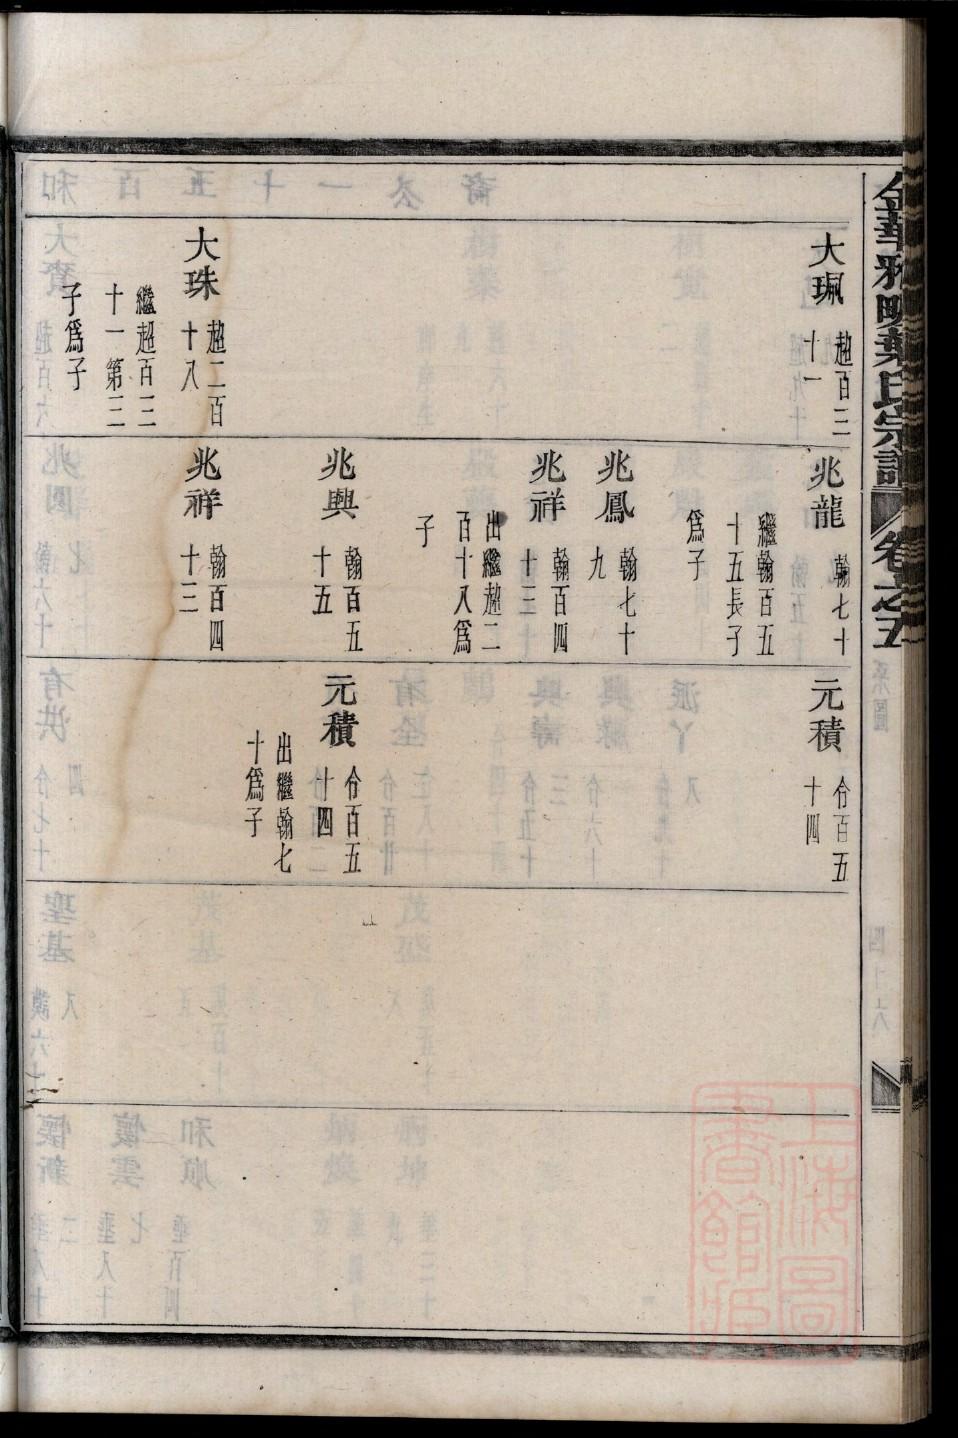 金華雅畈葉氏宗譜 卷之五
系圖
四十六
大珮 趙百三十一
大珠 趙二百十八
繼趙百三十一第三子爲子
兆龍 翰七十
繼翰百五十五長子爲子
兆鳳 翰七十九
兆祥 翰百四十三
出繼趙二百十八爲子
兆興 翰百五十五
兆祥 翰百四十三
元積 佾百五十四
元積 佾百五十四
出繼翰七十爲子
上海圖書館藏